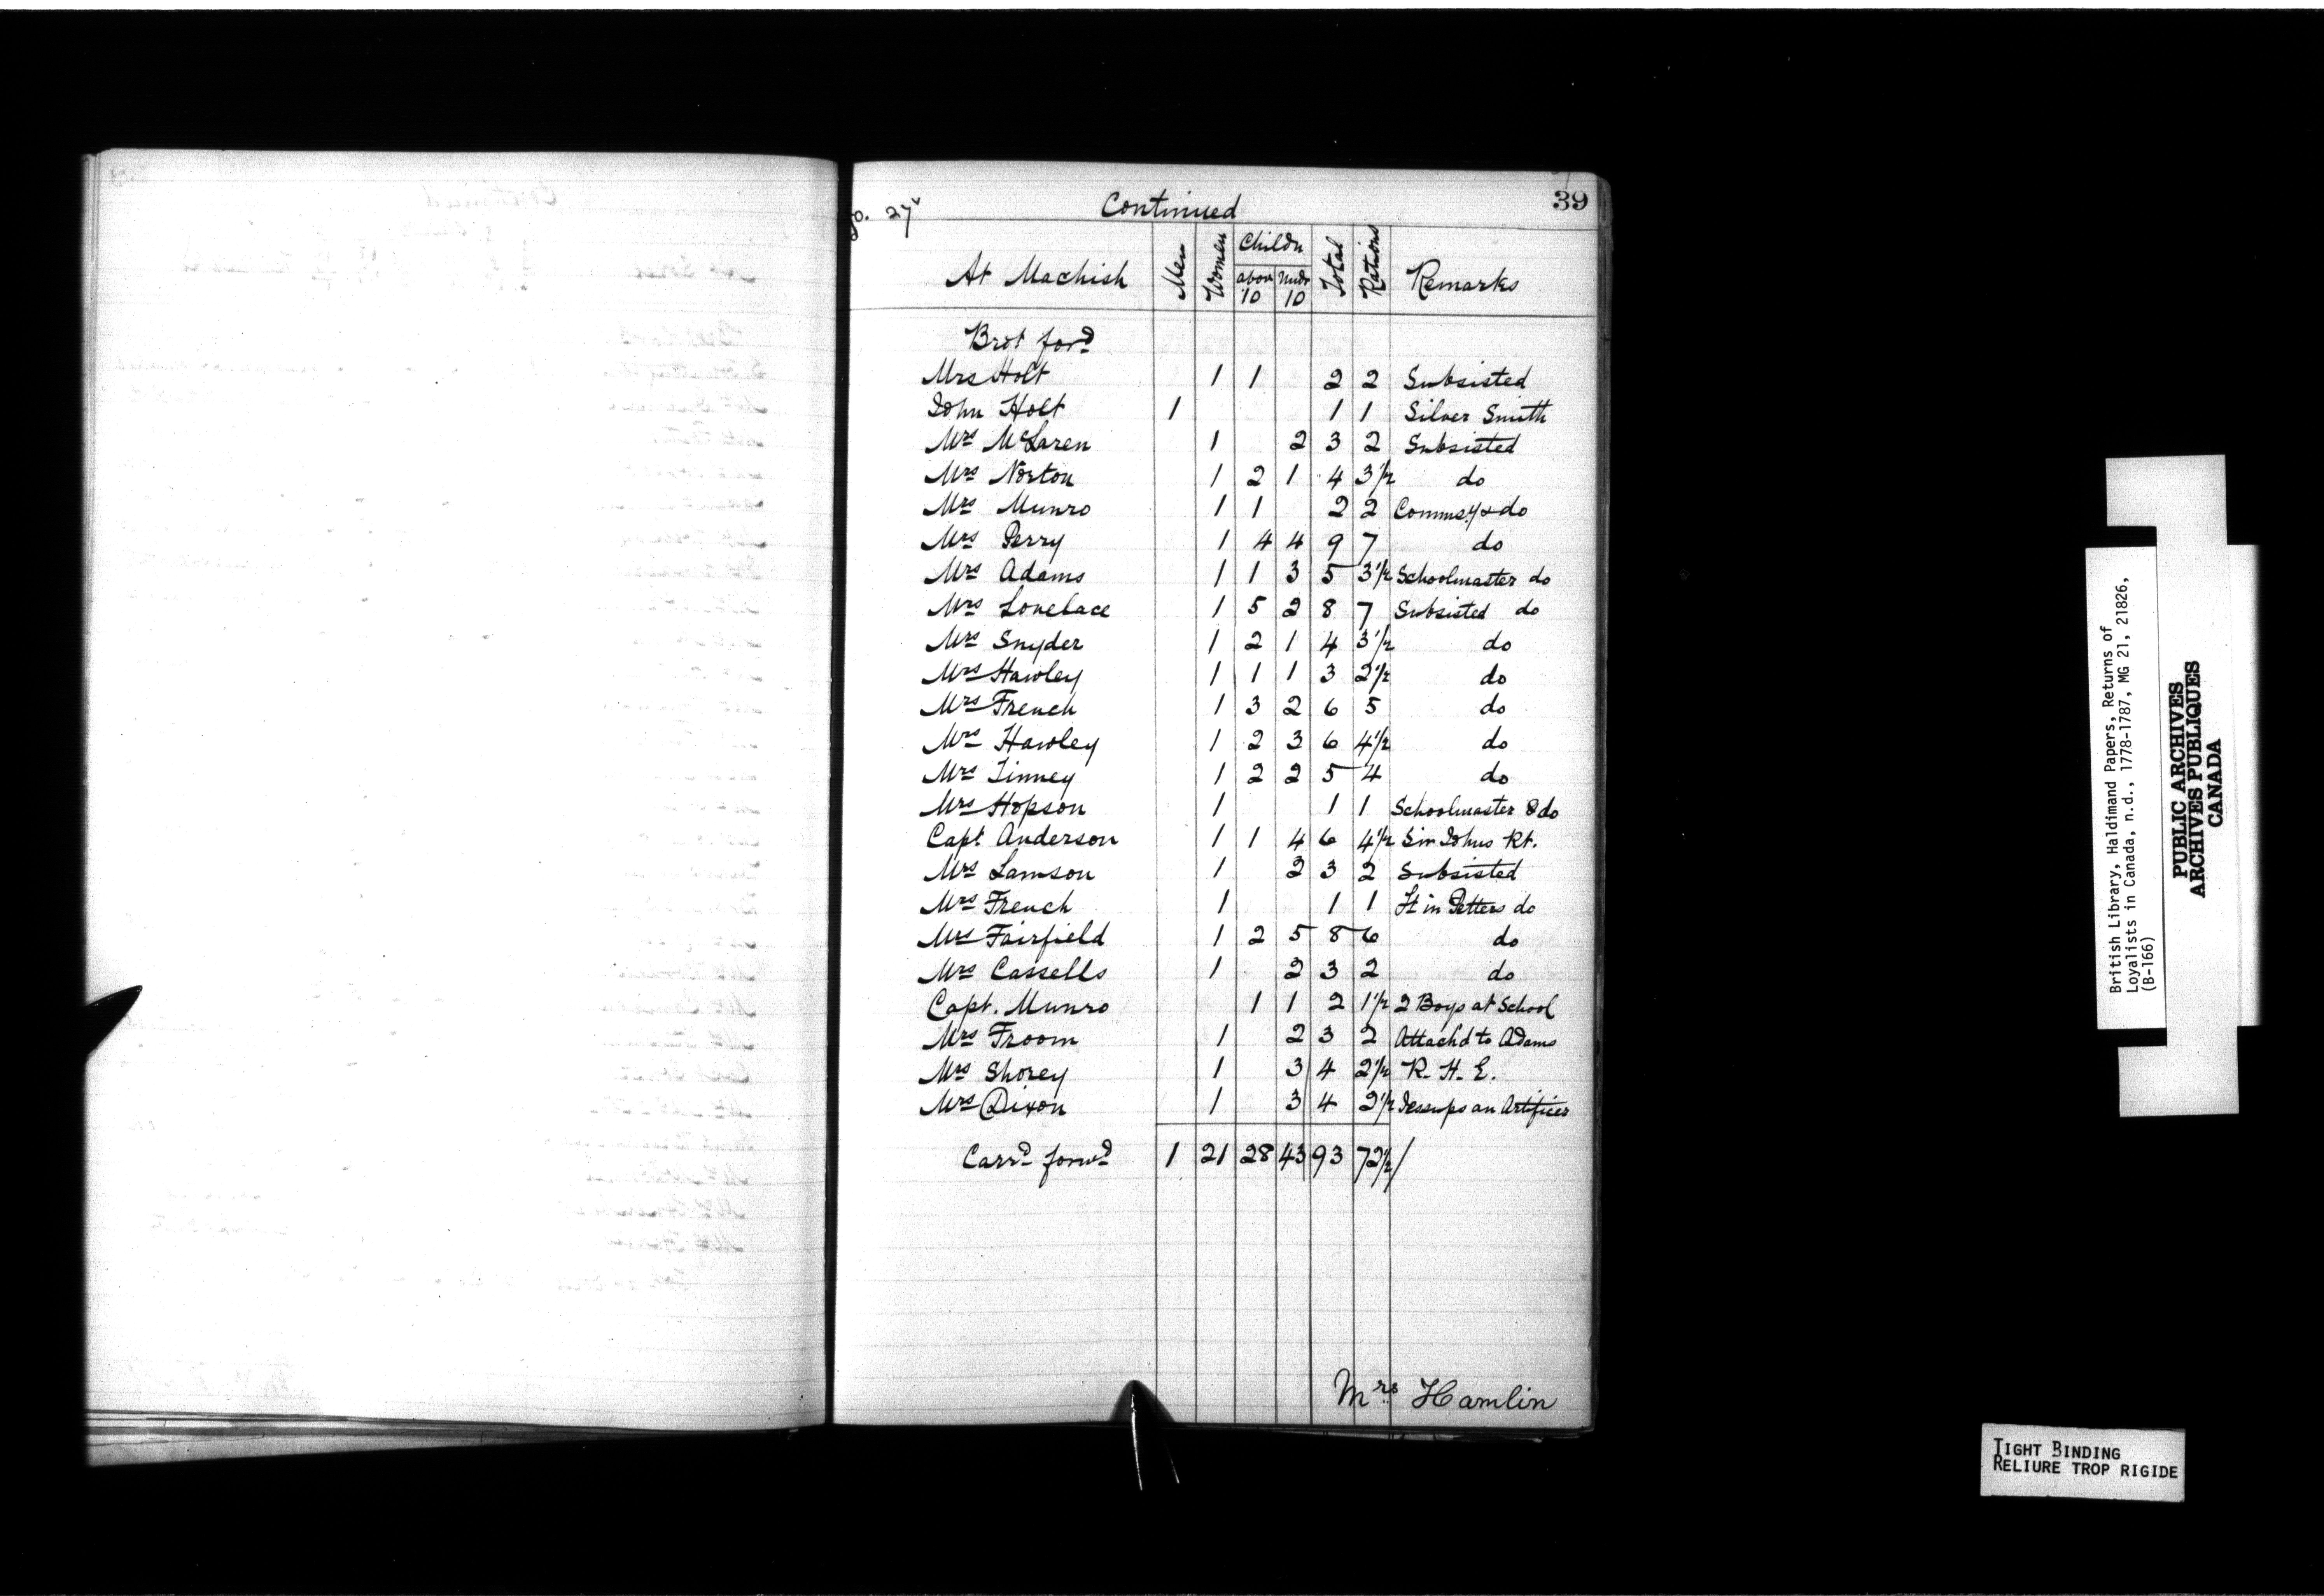 39
fo. 27v
Continued
At Machish Men Women Childn above 10 Undr 10 Total Rations Remarks
Brot ford
Mrs Holt 1 1 2 2 Subsisted
John Holt 1 1 1 Silver Smith
Mrs McLaren 1 2 3 2 Subsisted
Mrs Norton 1 2 1 4 3½ do
Mrs Munro 1 1 2 2 Commsy & do
Mrs Perry 1 4 4 9 7 do
Mrs Adams 1 1 3 5 3½ Schoolmaster do
Mrs Lovelace 1 5 2 8 7 Subsisted do
Mrs Snyder 1 2 1 4 3½ do
Mrs Hawley 1 1 1 3 2½ do
Mrs French 1 3 2 6 5 do
Mrs Hawley 1 2 3 6 4½ do
Mrs Tinney 1 2 2 5 4 do
Mrs Hopson 1 1 1 Schoolmaster & do
Capt Anderson 1 1 4 6 4½ Sir Johns Rt.
Mrs Lamson 1 2 3 2 Subsisted
Mrs French 1 1 1 Lt in Petters do
Mrs Fairfield 1 2 5 8 6 do
Mrs Cassells 1 2 3 2 do
Capt. Munro 1 1 2 1½ 2 Boys at School
Mrs Froom 1 2 3 2 Attachd to Adams
Mrs Shorey 1 3 4 2½ R. H. E.
Mrs Dixon 1 3 4 2½ Jessups an Artificer
Carrd forwd 1 21 28 43 93 72½/
Mrs Hamlin
British Library, Haldimand Papers, Returns of
Loyalists in Canada, n.d., 1778-1787, MG 21, 21826,
(B-166)
PUBLIC ARCHIVES
ARCHIVES PUBLIQUES
CANADA
TIGHT BINDING
RELIURE TROP RIGIDE